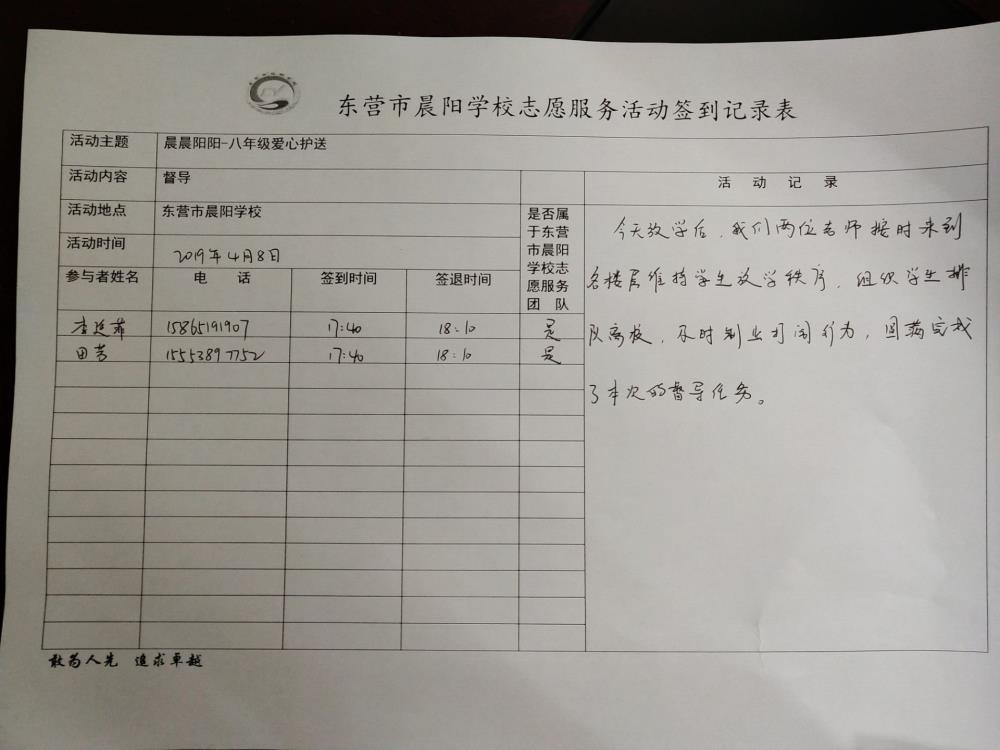 东营市晨阳学校志愿服务活动签到记录表
活动主题 晨晨阳阳-八年级爱心护送
活动内容 督导
活动地点 东营市晨阳学校
活动时间 2019年4月8日
参与者姓名 电话 签到时间 签退时间 是否属于东营市晨阳学校志愿服务团队
李 15865191907 17:40 18:10 是
田芳 15553897752 17:40 18:10 是
活动记录
今天放学后,我们两位老师按时来到
各楼层维持学生放学秩序,组织学生排
队离校,及时制止打闹行为,圆满完成
了本次的督导任务。
敢为人先 追求卓越